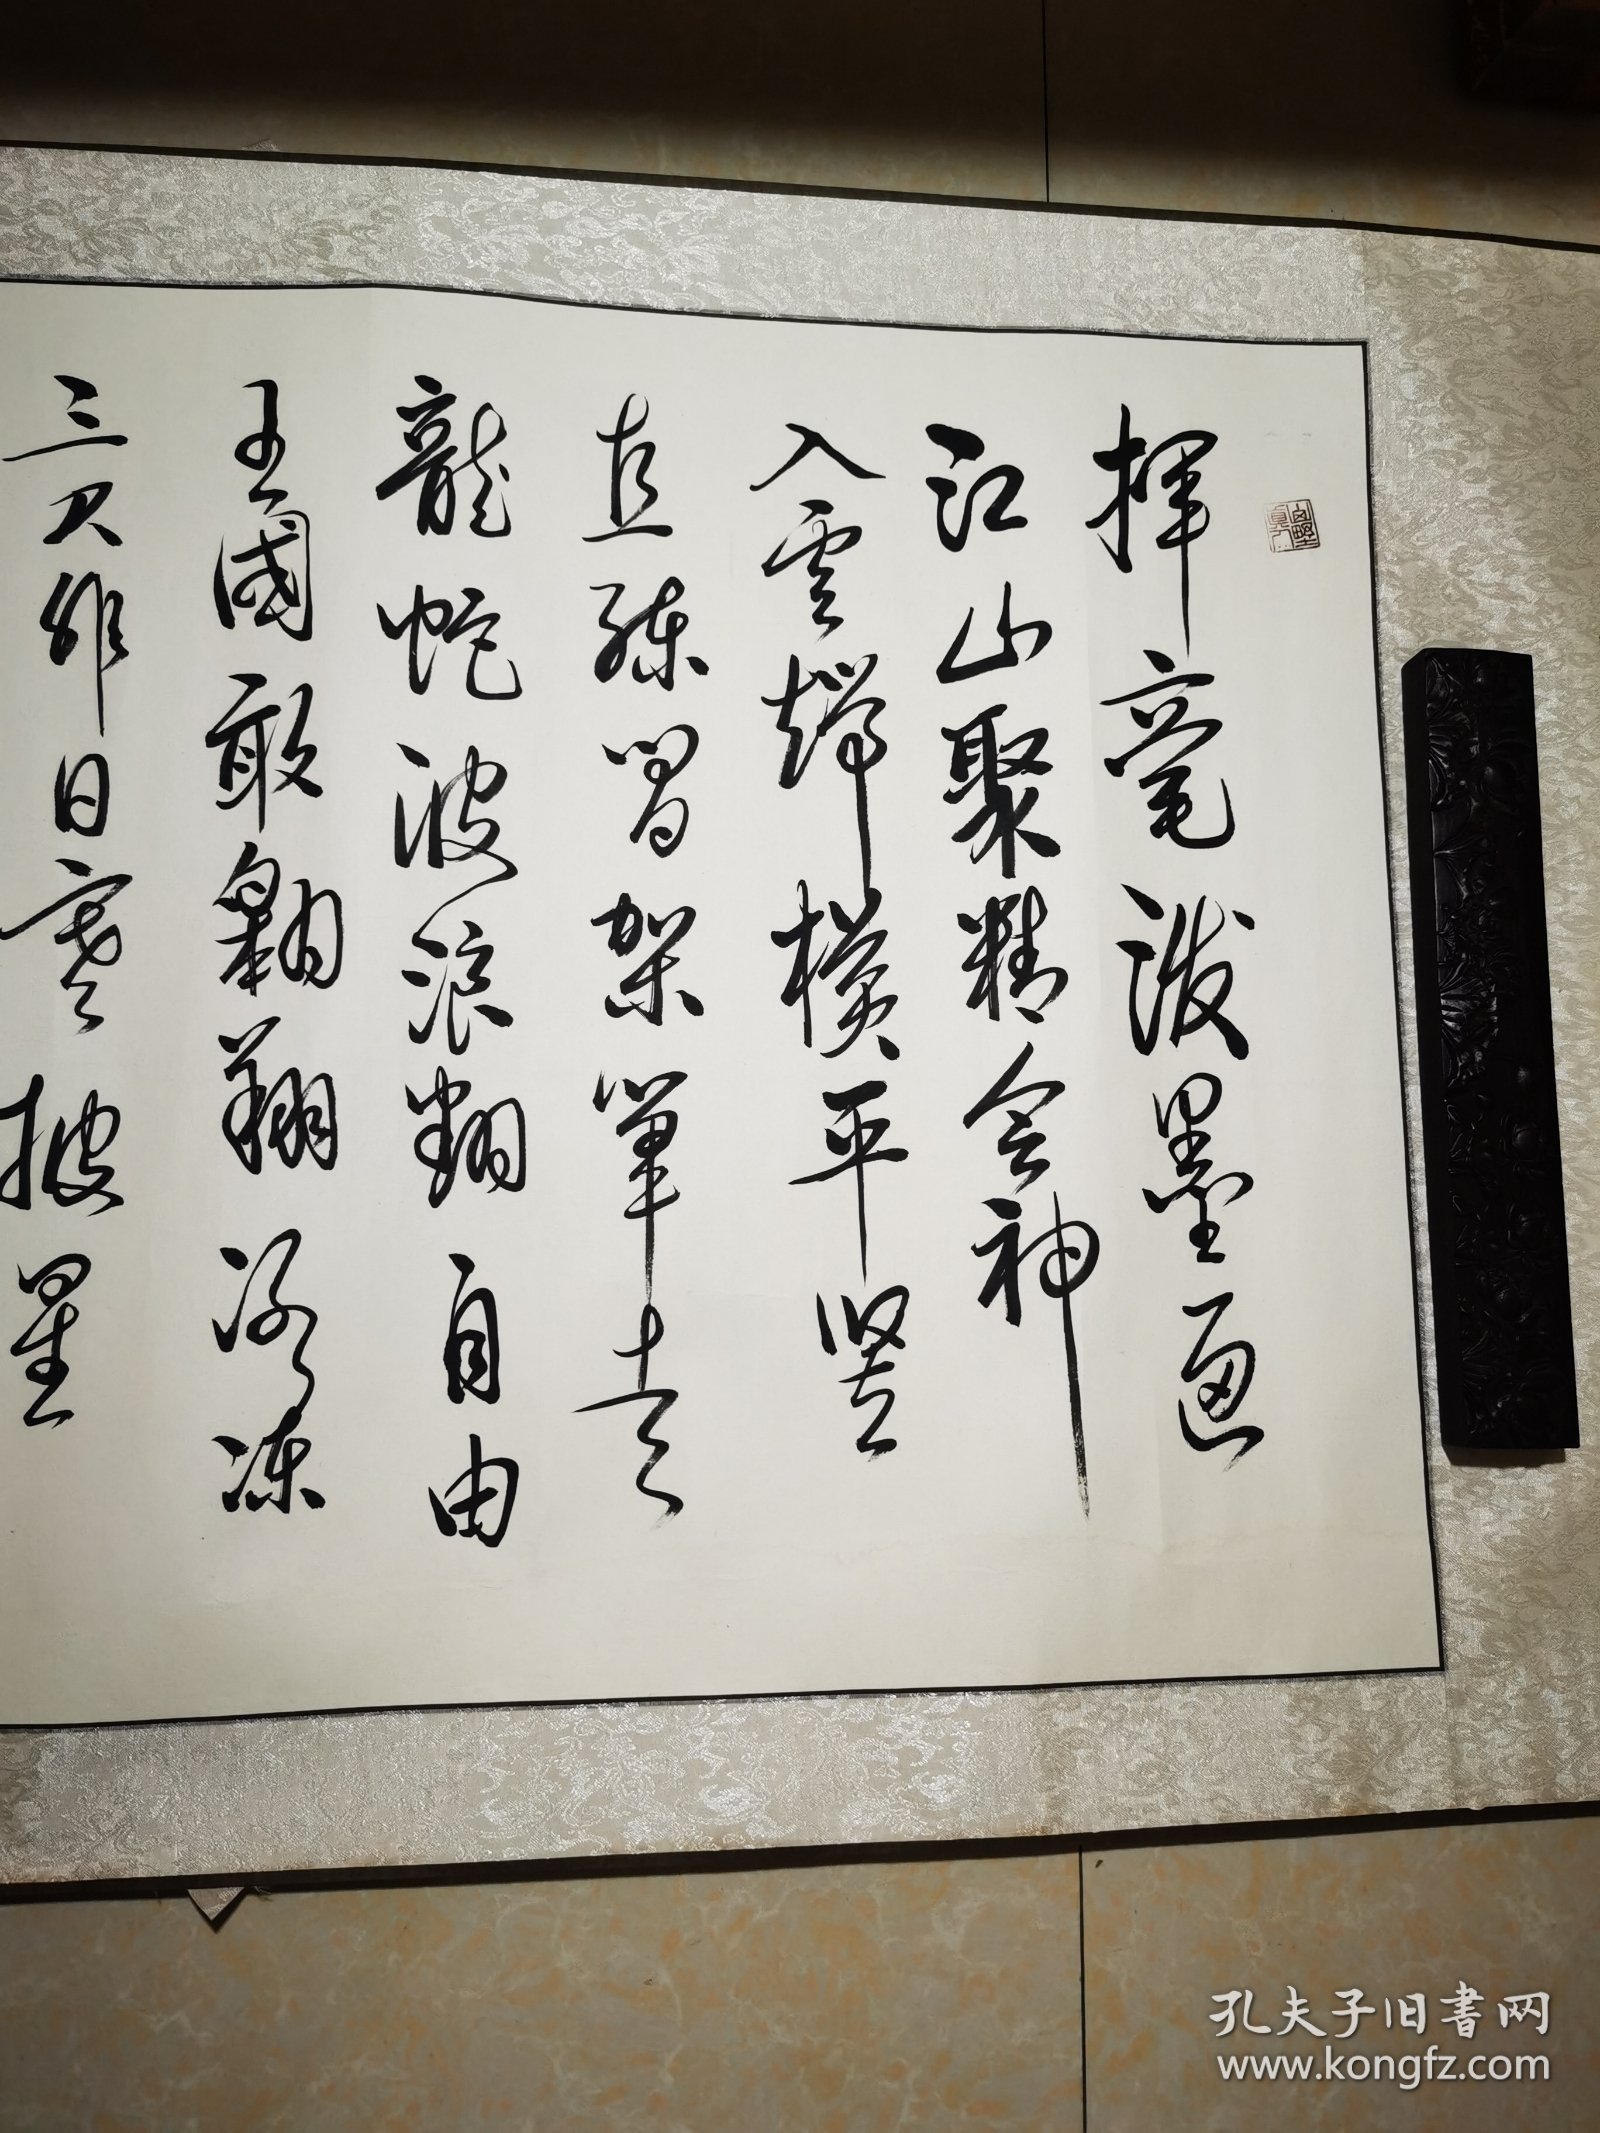 揮毫潑墨通
江山聚精會神
入雲端橫平豎
直練習架筆走
龍蛇波浪翻自由
王國敢翱翔冷凍
三尺非日寒披星
孔夫子旧書网
www.kongfz.com